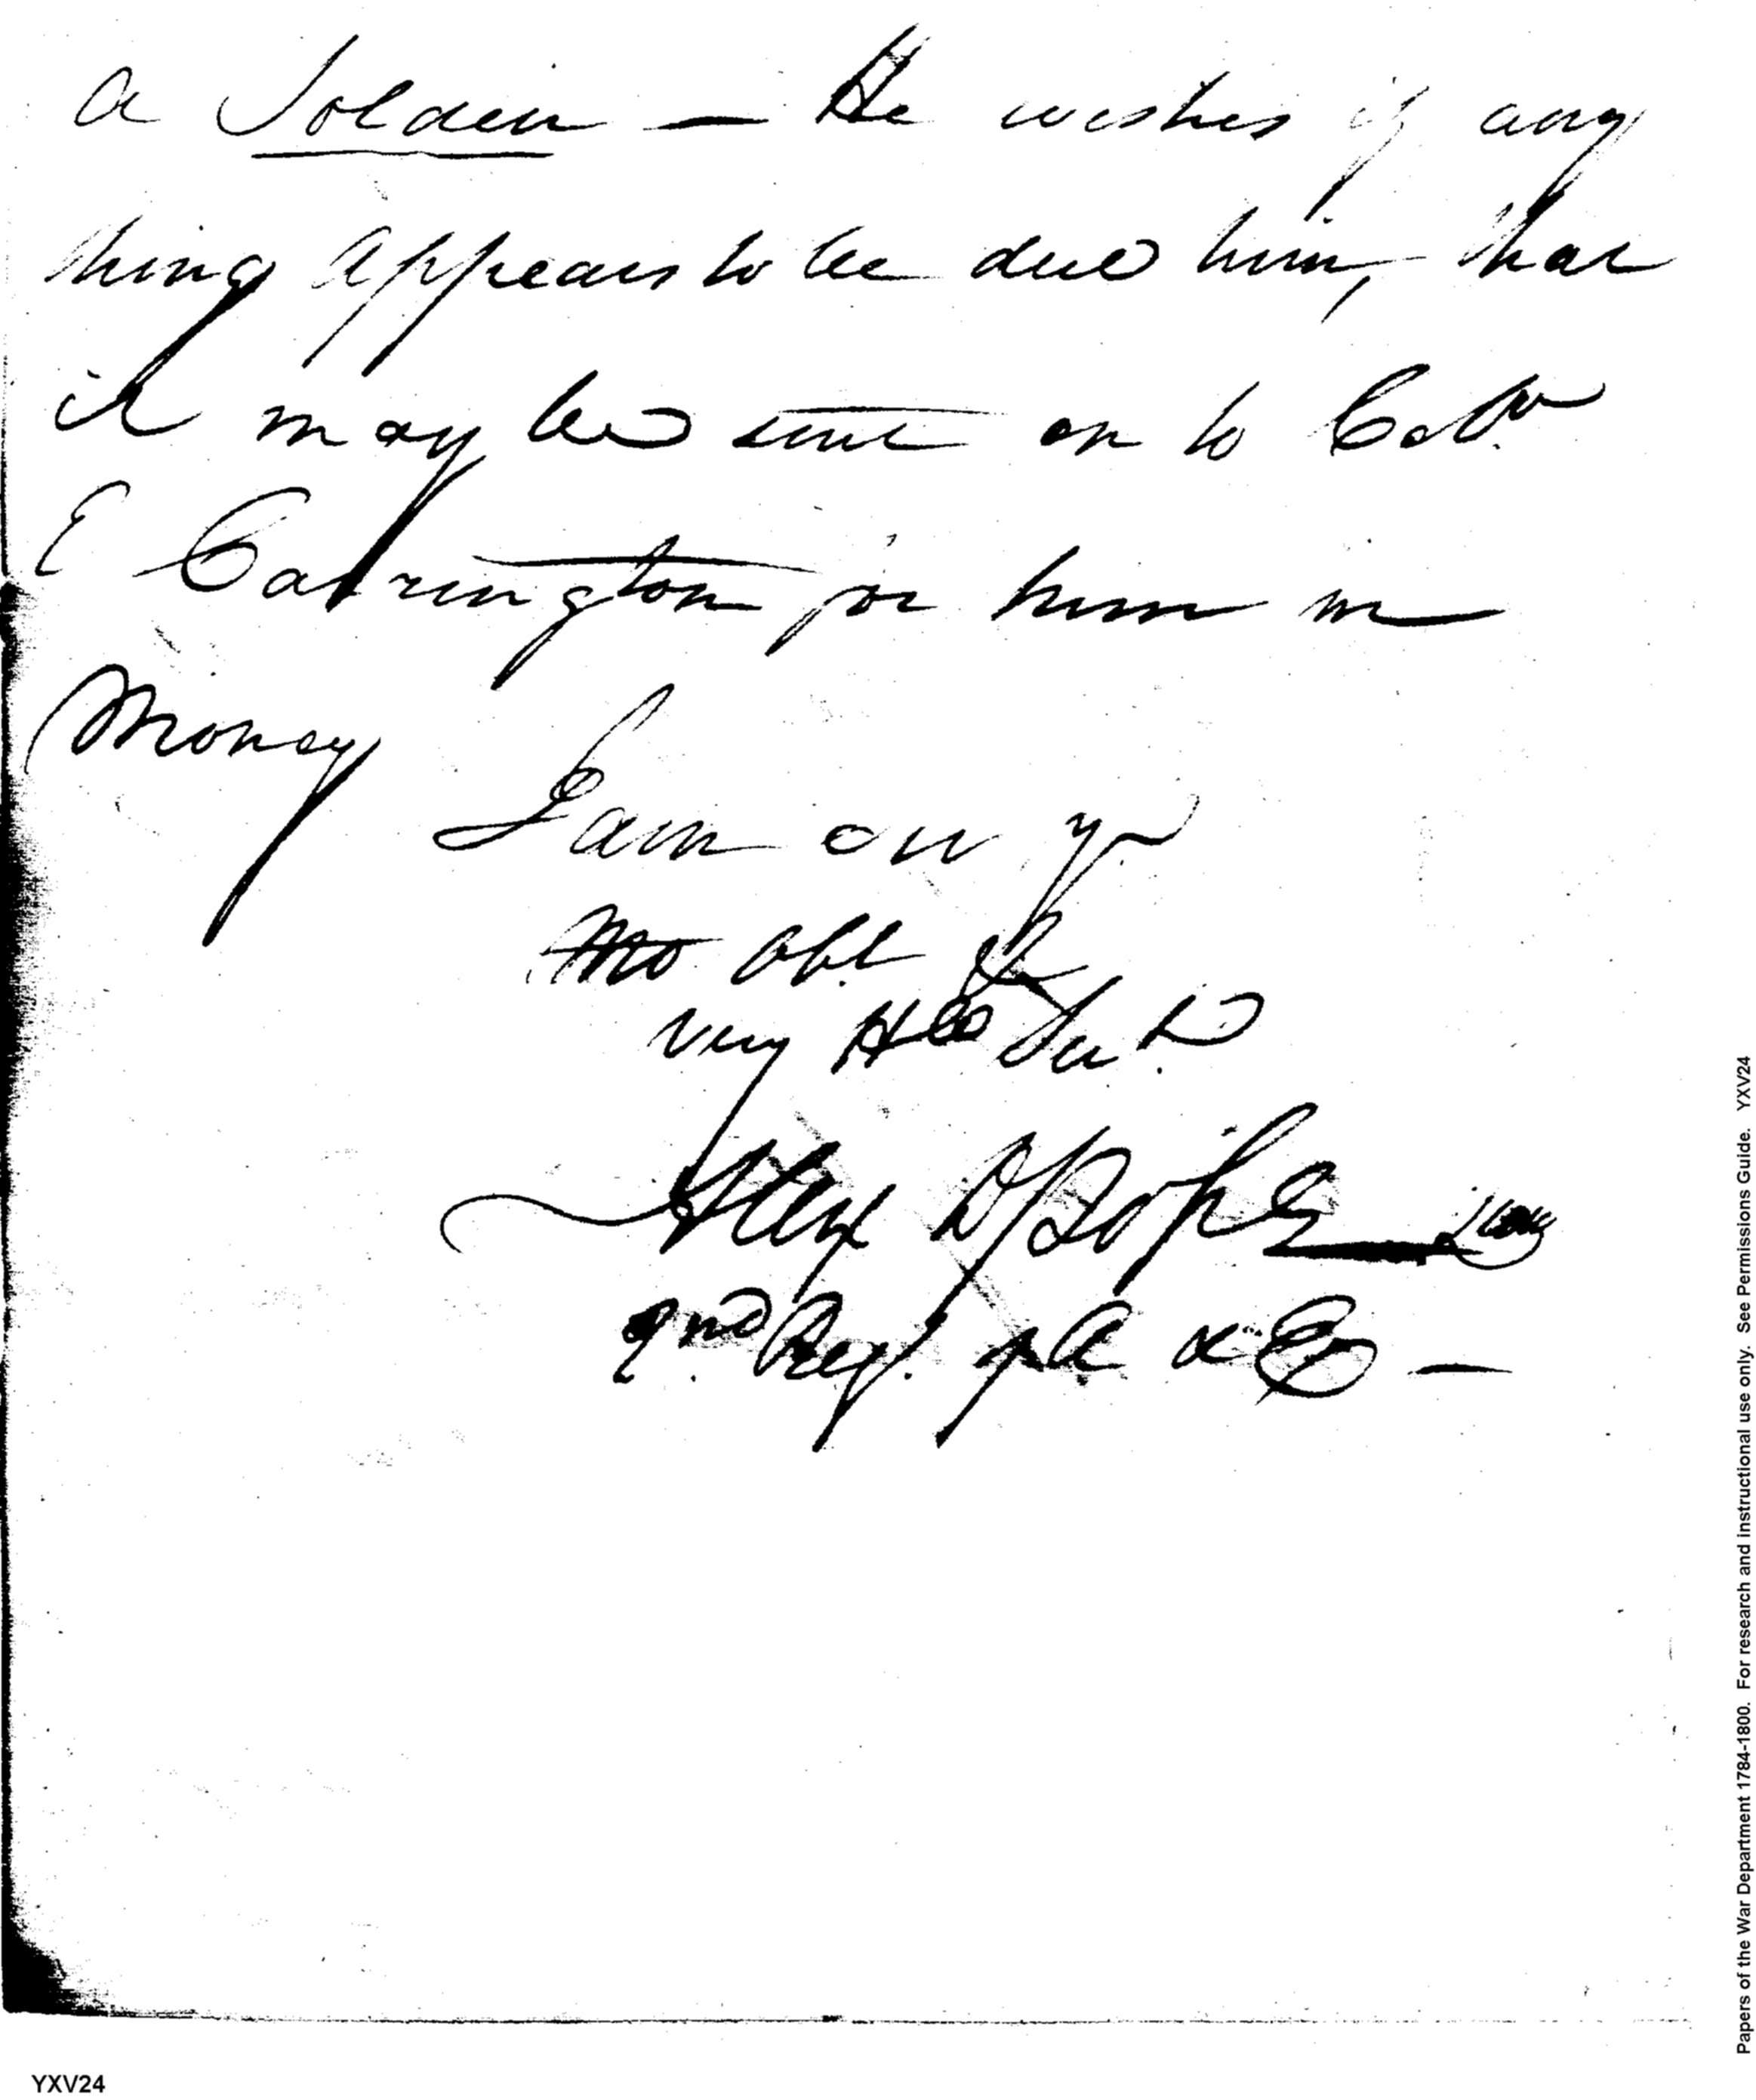 a Soldier — He wishes if any
thing appears to be due him, that
it may be sent on to Colo.
E Carrington for him in
Money
I am Sir yr
Mo Obt &
very Hble Servt
Alex D Pope
2nd Regt. of A & E —
YXV24
Papers of the War Department 1784-1800. For research and instructional use only. See Permissions Guide. YXV24